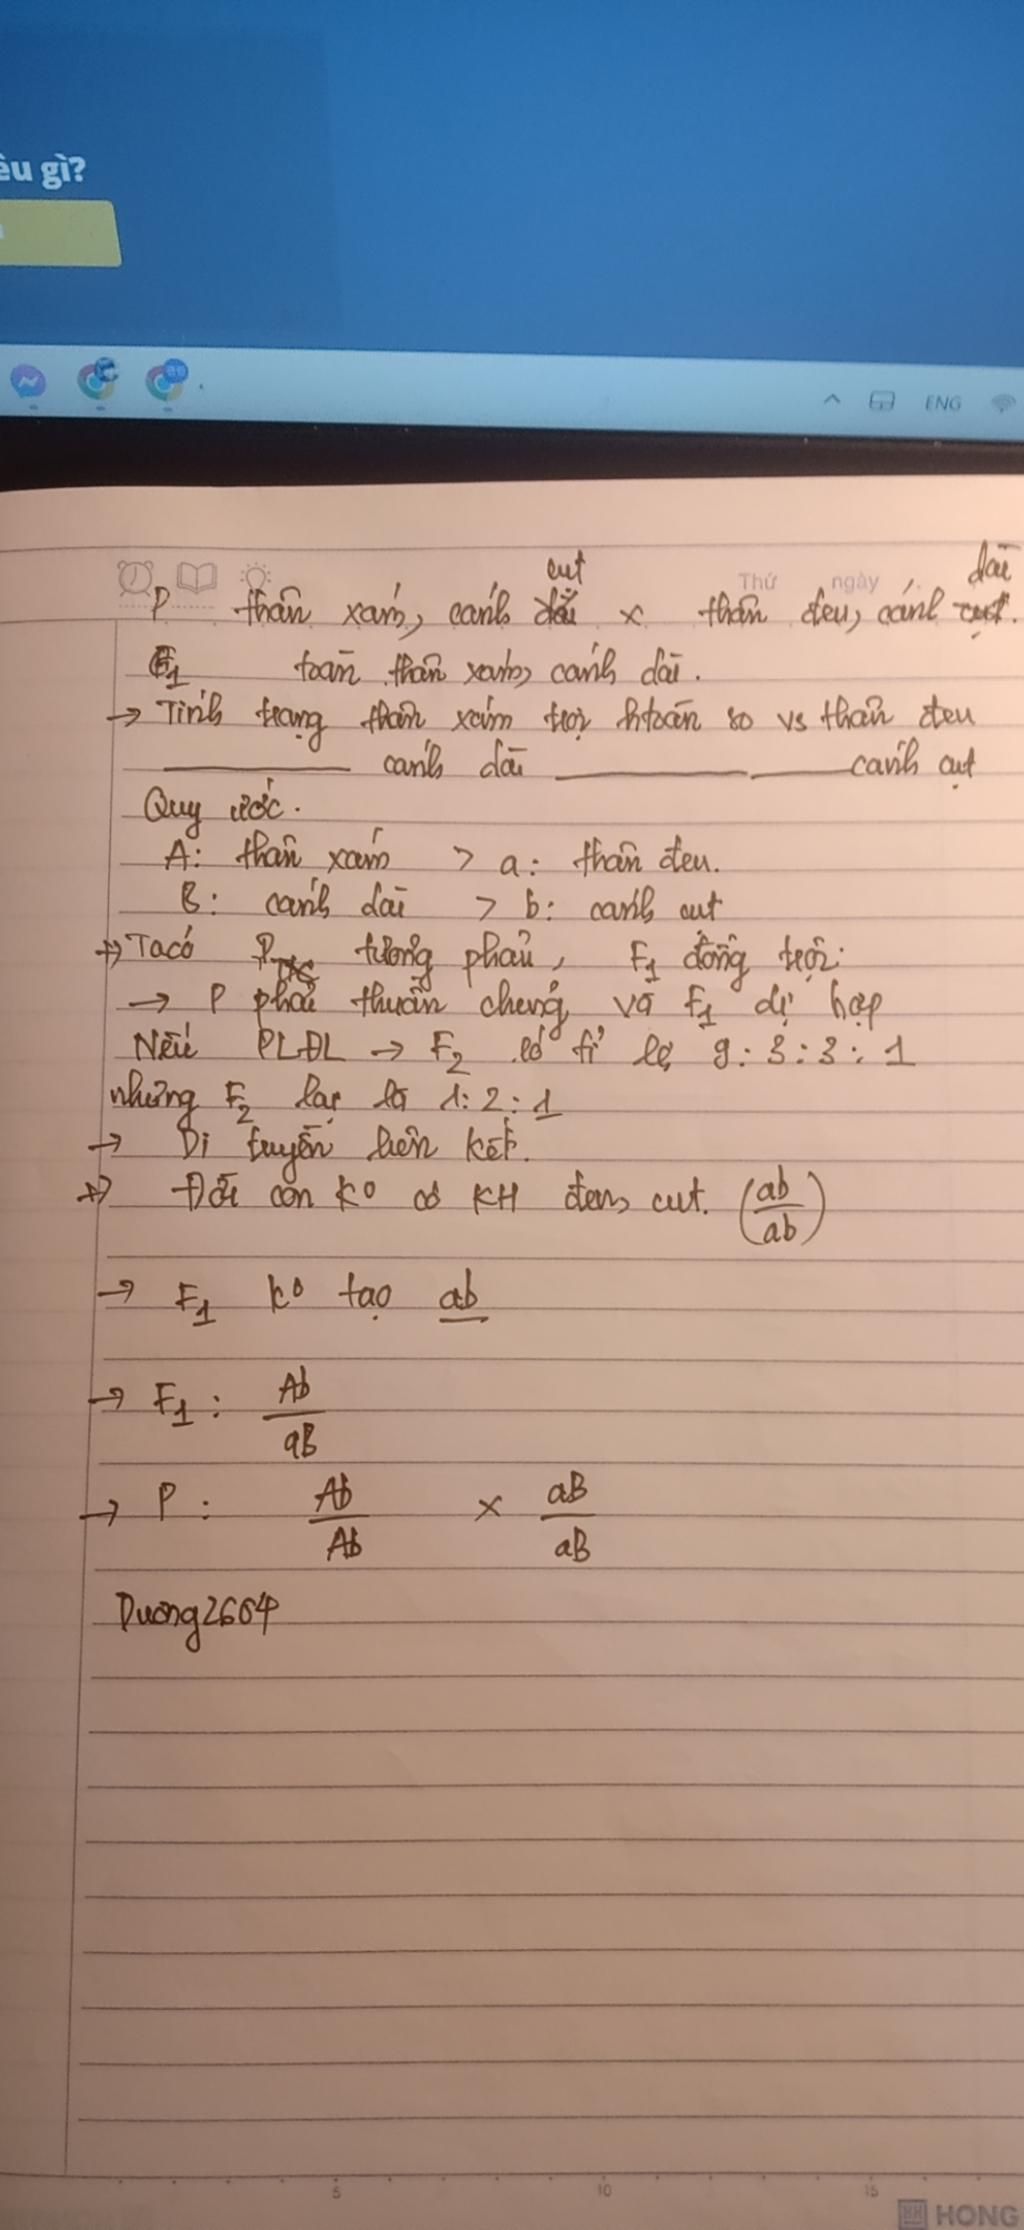 êu gì?
ENG
Thứ ngày
P thân xám, cánh cụt x thân đen, cánh dài
F1 toàn thân xám, cánh dài.
→ Tính trạng thân xám trội htoàn so vs thân đen
cánh dài cánh cụt
Quy ước.
A: thân xám > a: thân đen.
B: cánh dài > b: cánh cụt
+) Ta có P tương phản, F1 đồng trội.
→ P phải thuần chủng và F1 dị hợp
Nếu PLĐL → F2 có tỉ lệ 9:3:3:1
nhưng F2 lại là 1:2:1
→ Di truyền liên kết.
+) Đời con ko có KH đen, cụt. (ab/ab)
→ F1 ko tạo ab
→ F1: Ab/aB
→ P: Ab/Ab x aB/aB
Duong2664
5 10 15
HONG